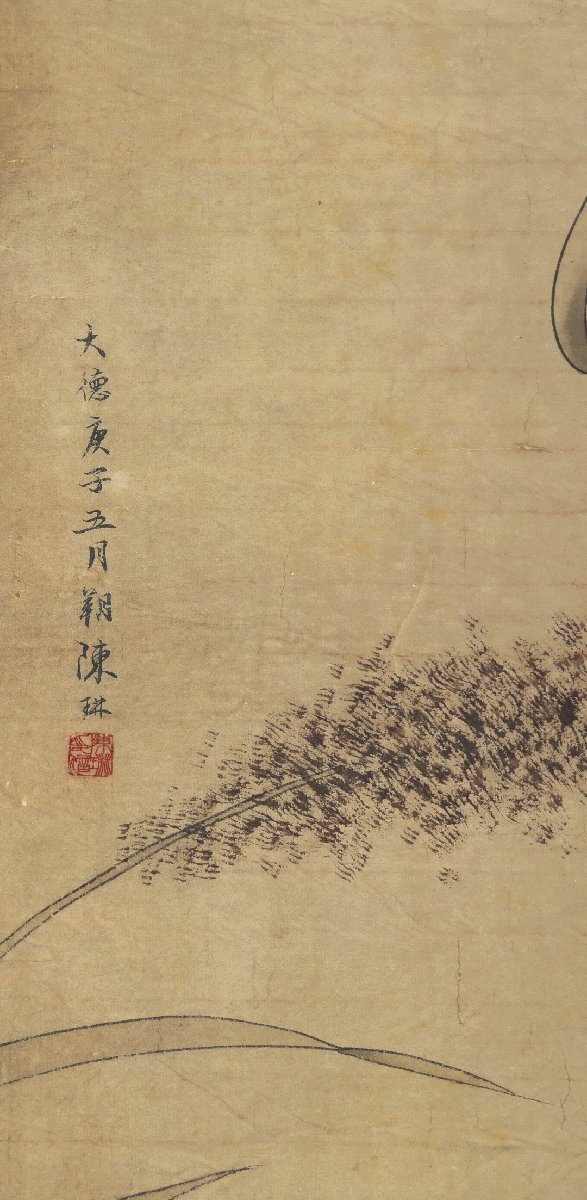 大德庚子五月朔陳琳